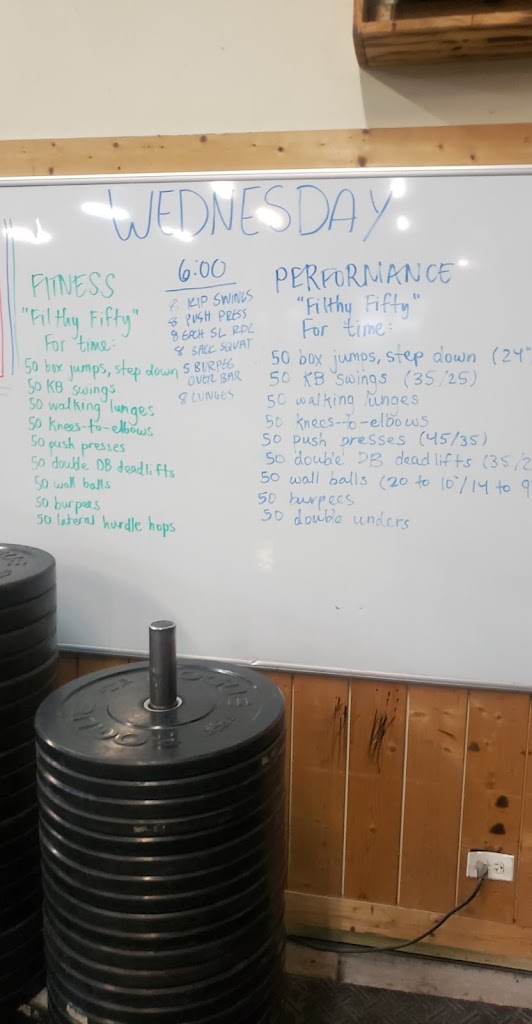 WEDNESDAY
FITNESS
"Filthy Fifty"
For time:
50 box jumps, step down
50 KB swings
50 walking lunges
50 knees-to-elbows
50 push presses
50 double DB deadlifts
50 wall balls
50 burpees
50 lateral hurdle hops
6:00
8 KIP SWINGS
8 PUSH PRESS
8 EACH SL RDL
8 BACK SQUAT
5 BURPEE
OVER BAR
8 LUNGES
PERFORMANCE
"Filthy Fifty"
For time:
50 box jumps, step down (24"
50 KB swings (35/25)
50 walking lunges
50 knees-to-elbows
50 push presses (45/35)
50 double DB deadlifts (35/2
50 wall balls (20 to 10'/14 to 9
50 burpees
50 double unders
ROGUE